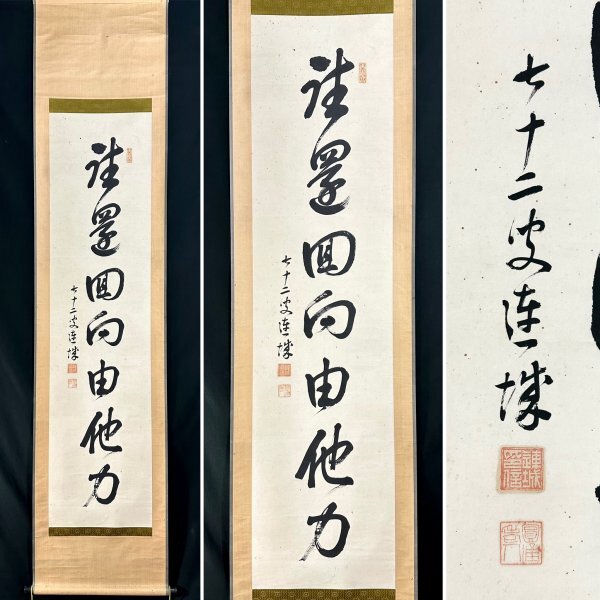 往還回向由他力
七十二叟連城
往還回向由他力
七十二叟連城
七十二叟連城